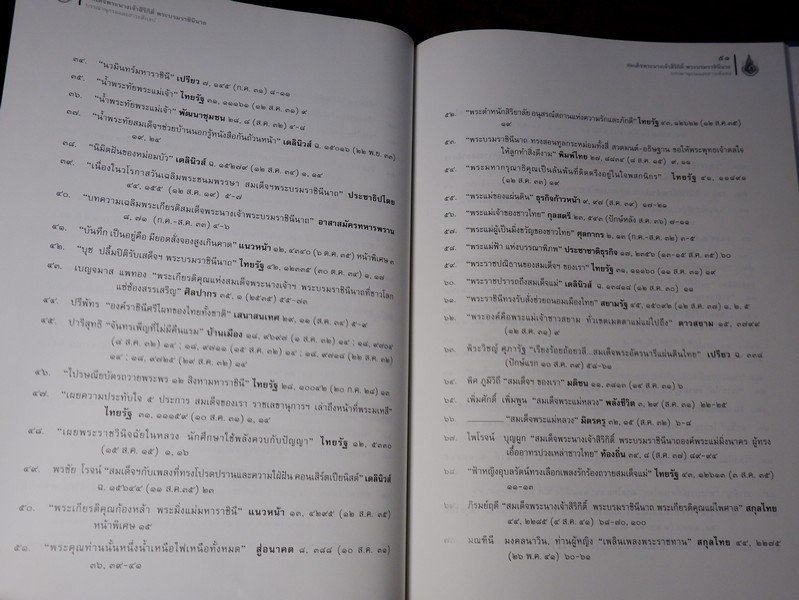 สมเด็จพระนางเจ้าสิริกิติ์ พระบรมราชินีนาถ
๓๔. "นวมินทร์มหาราชินี" เปรียว ๗, ๑๔๕ (ก.ค. ๓๑) ๘-๑๑
๓๕. "น้ำพระทัยพระแม่เจ้า" ไทยรัฐ ๓๑, ๑๑๑๖๑ (๑๒ ส.ค. ๓๑) ๙
๓๖. "น้ำพระทัยพระแม่เจ้า" พัฒนาชุมชน ๒๘, ๘ (ส.ค. ๓๒) ๔-๘
๓๗. "น้ำพระทัยสมเด็จฯช่วยบ้านนอกรู้หนังสือกันถ้วนหน้า" เดลินิวส์ ฉ. ๑๕๐๑๖ (๒๒ พ.ย. ๓๓)
๑๙, ๒๔
๓๘. "นิมิตฝันของหม่อมบัว" เดลินิวส์ ฉ. ๑๕๒๗๙ (๑๒ ส.ค. ๓๔) ๑, ๑๔
๓๙. "เนื่องในวโรกาสวันเฉลิมพระชนมพรรษา สมเด็จฯพระบรมราชินีนาถ" ประชาธิปไตย
๔๔, ๑๕๕ (๑๒ ส.ค. ๑๙) ๕-๗
๔๐. "บทความเฉลิมพระเกียรติสมเด็จพระนางเจ้าพระบรมราชินีนาถ" อาสาสมัครทหารพราน
๘, ๗๑ (ก.ค.-ส.ค. ๓๓) ๔-๖
๔๑. "บันทึก เป็นอยู่คือ มียอดสั่งจองสูงเกินคาด" แนวหน้า ๑๒, ๔๓๔๐ (๖ ต.ค. ๓๕) หน้าพิเศษ ๓
๔๒. "บุช ปลื้มปิติรับเสด็จฯ พระบรมราชินีนาถ" ไทยรัฐ ๔๒, ๑๒๓๓๕ (๓๐ ต.ค. ๓๔) ๑, ๑๗
๔๓. เบญจมาส แพทอง "พระเกียรติคุณแห่งสมเด็จพระนางเจ้าฯ พระบรมราชินีนาถที่ชาวโลก
แซ่ซ้องสรรเสริญ" ศิลปากร ๓๕, ๑ (๒๕๓๕) ๕๕-๗๓
๔๔. ปรีพัทร "องค์ราชินีศรีไผทของไทยทั้งชาติ" เสนาสนเทศ ๒๙, ๑๑ (ส.ค. ๓๔) ๕-๙
๔๕. ปาริสุทธิ์ "จันทาเพ็ญที่ไม่มีคืนแรม" บ้านเมือง ๑๘, ๙๖๙๗ (๑ ส.ค. ๓๒) ๑๔ ; ๑๘, ๙๗๐๔
(๘ ส.ค. ๓๒) ๑๔ ; ๑๘, ๙๗๑๑ (๑๕ ส.ค. ๓๒) ๑๔ ; ๑๘, ๙๗๑๘ (๒๒ ส.ค. ๓๒)
๑๔ ; ๑๘, ๙๗๒๕ (๒๙ ส.ค. ๓๒) ๑๔
๔๖. "ไปรษณียบัตรถวายพระพร ๑๒ สิงหามหาราชินี" ไทยรัฐ ๒๘, ๑๐๐๔๒ (๒๐ ก.ค. ๒๘) ๑๓
๔๗. "เผยความประทับใจ ๕ ประการ สมเด็จฯของเรา ราชเลขานุการฯ เล่าถึงหน้าที่พระมเหสี"
ไทยรัฐ ๓๑, ๑๑๑๕๙ (๑๐ ส.ค. ๓๑) ๑, ๑๔
๔๘. "เผยพระราชวินิจฉัยในหลวง นักศึกษาใช้พลังควบกับปัญญา" ไทยรัฐ ๑๒, ๕๓๓๐
(๑๕ ส.ค. ๑๕) ๑, ๑๖
๔๙. พรชัย โรจน์ "สมเด็จฯกับเพลงที่ทรงโปรดปรานและความใฝ่ฝัน คอนเสิร์ตเปียนิสต์" เดลินิวส์
ฉ. ๑๕๖๔๔ (๑๑ ส.ค.๓๕) ๒๓
๕๐. "พระเกียรติคุณก้องหล้า พระมิ่งแม่มหาราชินี" แนวหน้า ๑๓, ๔๒๙๕ (๑๒ ส.ค. ๓๕)
หน้าพิเศษ ๑๕
๕๑. "พระคุณท่านนั้นหนึ่งน้ำเหนือไฟเหนือทั้งหมด" สู่อนาคต ๘, ๓๘๘ (๑๐ ส.ค. ๓๑)
๓๖, ๓๙-๔๑
๕๑
สมเด็จพระนางเจ้าสิริกิติ์ พระบรมราชินีนาถ
๕๒. "พระตำหนักสิริยาลัยอนุสรณ์สถานแห่งความรักและภักดี" ไทยรัฐ ๔๓, ๑๒๖๒๒ (๑๒ ส.ค.๓๕)
๑๙
๕๓. "พระบรมราชินีนาถ ทรงสอนทูลกระหม่อมทั้งสี่ สวดมนต์-อธิษฐาน ขอให้พระพุทธเจ้าดลใจ
ให้ลูกทำสิ่งดีงาม" พิมพ์ไทย ๒๗, ๘๘๓๔ (๔ ส.ค. ๑๕) ๙, ๑๑
๕๔. "พระมหากรุณาธิคุณเป็นล้นพ้นที่ติดตรึงอยู่ในใจพสกนิกร" ไทยรัฐ ๔๑, ๑๑๘๙๑
(๑๒ ส.ค. ๓๓) ๑๙
๕๕. "พระแม่ของแผ่นดิน" ธุรกิจก้าวหน้า ๙, ๙๗ (ส.ค. ๓๙) ๑๗-๒๑
๕๖. "พระแม่เจ้าของชาวไทย" กุลสตรี ๒๓, ๕๔๓ (ปักษ์หลัง ส.ค. ๓๖) ๗-๑๑
๕๗. "พระแม่ผู้เป็นมิ่งขวัญของชาวไทย" ศุลกากร ๒, ๑๓ (ก.ค.-ส.ค. ๓๒) ๓-๕
๕๘. "พระแม่ฟ้า แห่งบรรณาพิภพ" ประชาชาติธุรกิจ ๑๗, ๒๕๕๖ (๑๓-๑๕ ส.ค. ๓๕) ๖๐
๕๙. "พระราชปณิธานของสมเด็จฯ ของเรา" ไทยรัฐ ๓๑, ๑๑๑๖๐ (๑๑ ส.ค. ๓๑) ๑๙
๖๐. "พระราชปรารถถึงสมเด็จแม่" เดลินิวส์ ฉ. ๑๓๘๑๘ (๑๒ ส.ค. ๓๐) ๑๑
๖๑. "พระราชินีทรงรับสั่งช่วยถนอมเมืองไทย" สยามรัฐ ๔๕, ๑๕๐๙๒ (๑๒ ส.ค. ๓๗) ๑, ๒, ๕
๖๒. "พระองค์คือพระแม่เจ้าชาวสยาม ทั่วเขตเมตตาแม่แผ่ไปถึง" ดาวสยาม ๑๕, ๓๗๙๙
(๑๒ ส.ค. ๓๑) ๙
๖๓. พิระวิชญ์ ศุภารัฐ "เรียงร้อยถ้อยวดี...สมเด็จพระอัครนารีแผ่นดินไทย" เปรียว ฉ. ๓๓๘
(ปักษ์แรก ๑๐ ส.ค. ๓๙) ๕๘-๖๑
๖๔. พิศ ภูมิวิถี "สมเด็จฯ ของเรา" มติชน ๑๑, ๓๘๑๓ (๑๔ ส.ค. ๓๑) ๖
๖๕. เพิ่มศักดิ์ เพิ่มพูน "สมเด็จพระแม่หลวง" พลังชีวิต ๓, ๒๙ (ส.ค. ๓๑) ๒๒-๒๕
๖๖. ________ "สมเด็จพระแม่หลวง" มิตรครู ๓๒, ๑๕ (ส.ค. ๓๒) ๖-๘
๖๗. ไพโรจน์ บุญผูก "สมเด็จพระนางเจ้าสิริกิติ์ พระบรมราชินีนาถองค์พระแม่มิ่งนาคร ผู้ทรง
เอื้ออาทรปวงเหล่าชาวไทย" ท้องถิ่น ๓๔, ๘ (ส.ค. ๓๗) ๘๙-๙๔
๖๘. "ฟ้าหญิงอุบลรัตน์ทรงเลือกเพลงรักร้องถวายสมเด็จแม่" ไทยรัฐ ๔๓, ๑๒๖๑๓ (๓ ส.ค. ๓๕)
๑๑-๑๓
๖๙. ภิรมย์ฤดี "สมเด็จพระนางเจ้าสิริกิติ์ พระบรมราชินีนาถ พระเกียรติคุณแผ่ไพศาล" สกุลไทย
๔๔, ๒๒๘๕ (๔ ส.ค. ๔๑) ๖๘-๗๐, ๑๐๐
มณฑินี มงคลนาวิน, ท่านผู้หญิง "เพลินเพลงพระราชทาน" สกุลไทย ๔๔, ๒๒๗๕
(๒๖ พ.ค. ๔๑) ๖๐-๖๑